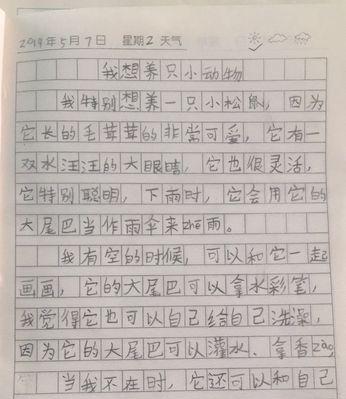 2019年5月7日 星期2 天气
我想养只小动物
我特别想养一只小松鼠，因为
它长的毛茸茸的非常可爱，它有一
双水汪汪的大眼睛，它也很灵活，
它特别聪明，下雨时，它会用它的
大尾巴当作雨伞来zhē雨。
我有空的时候，可以和它一起
画画，它的大尾巴可以拿水彩笔，
我觉得它也可以自己给自己洗澡，
因为它的大尾巴可以灌水、拿香zào，
当我不在时，它还可以和自己